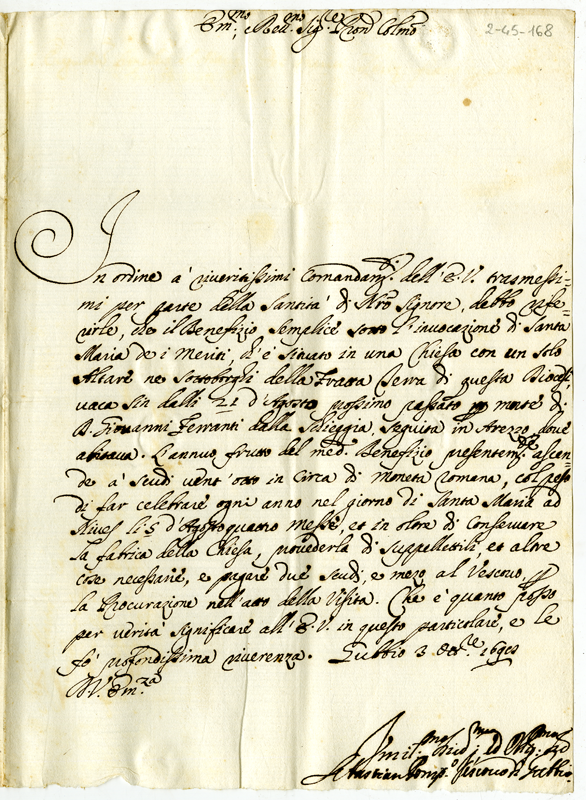 2-45-168
Em.mo e Rev.mo Sig.re Pron Colmo
In ordine à riveritissimi Comandam.ti dell'E.V. trasmessi-
mi per parte della Santità di Nro Signore, debbo rife-
rirle, che il Benefizio semplice sotto l'invocazione di Santa
Maria de i Meriti, ch'è situato in una Chiesa con un solo
Altare ne Sottoborghi della Fratta Terra di questa Diocesi,
vaca sin dalli 21 d'Agosto prossimo passato p morte di
D. Giovanni Ferranti dalla Schieggia, seguita in Arezzo dove
abitava. L'annuo frutto del med.o Benefizio presentem.te ascen-
de a scudi vent'otto in circa di moneta romana, col peso
di far celebrare ogni anno nel giorno di Santa Maria ad
Nives li 5 d'Agosto quattro messe, et in oltre di conservare
la fabrica della Chiesa, provederla di suppellettili, et altre
cose necessarie, e pagare due scudi, e mezo al Vescovo p
la Procurazione nell'atto della Visita. Che è quanto posso
per verità significare all'E.V. in questo particolare, e le
fò profondissima riverenza. Gubbio 3 Ott.re
D.V. Em.za
Vescovo di Gubbio